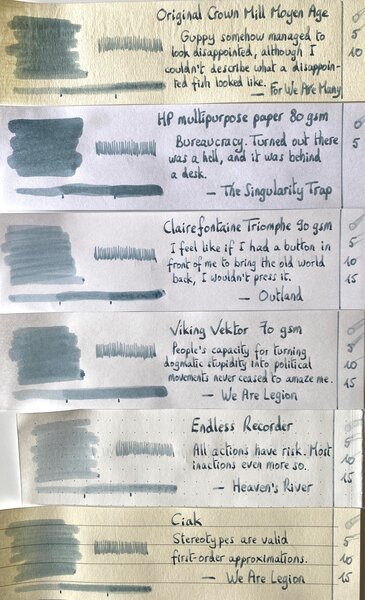 Original Crown Mill Moyen Age
Guppy somehow managed to
look disappointed, although I
couldn't describe what a disappoin-
ted fish looked like.
— For We Are Many
0
5
10
HP multipurpose paper 80 gsm
Bureaucracy. Turned out there
was a hell, and it was behind
a desk.
— The Singularity Trap
0
5
Clairefontaine Triomphe 90 gsm
I feel like if I had a button in
front of me to bring the old world
back, I wouldn't press it.
— Outland
0
5
10
15
Viking Vektor 70 gsm
People's capacity for turning
dogmatic stupidity into political
movements never ceased to amaze me.
— We Are Legion
0
5
10
15
Endless Recorder
All actions have risk. Most
inactions even more so.
— Heaven's River
0
5
10
15
Ciak
Stereotypes are valid
first-order approximations.
— We Are Legion
0
5
10
15